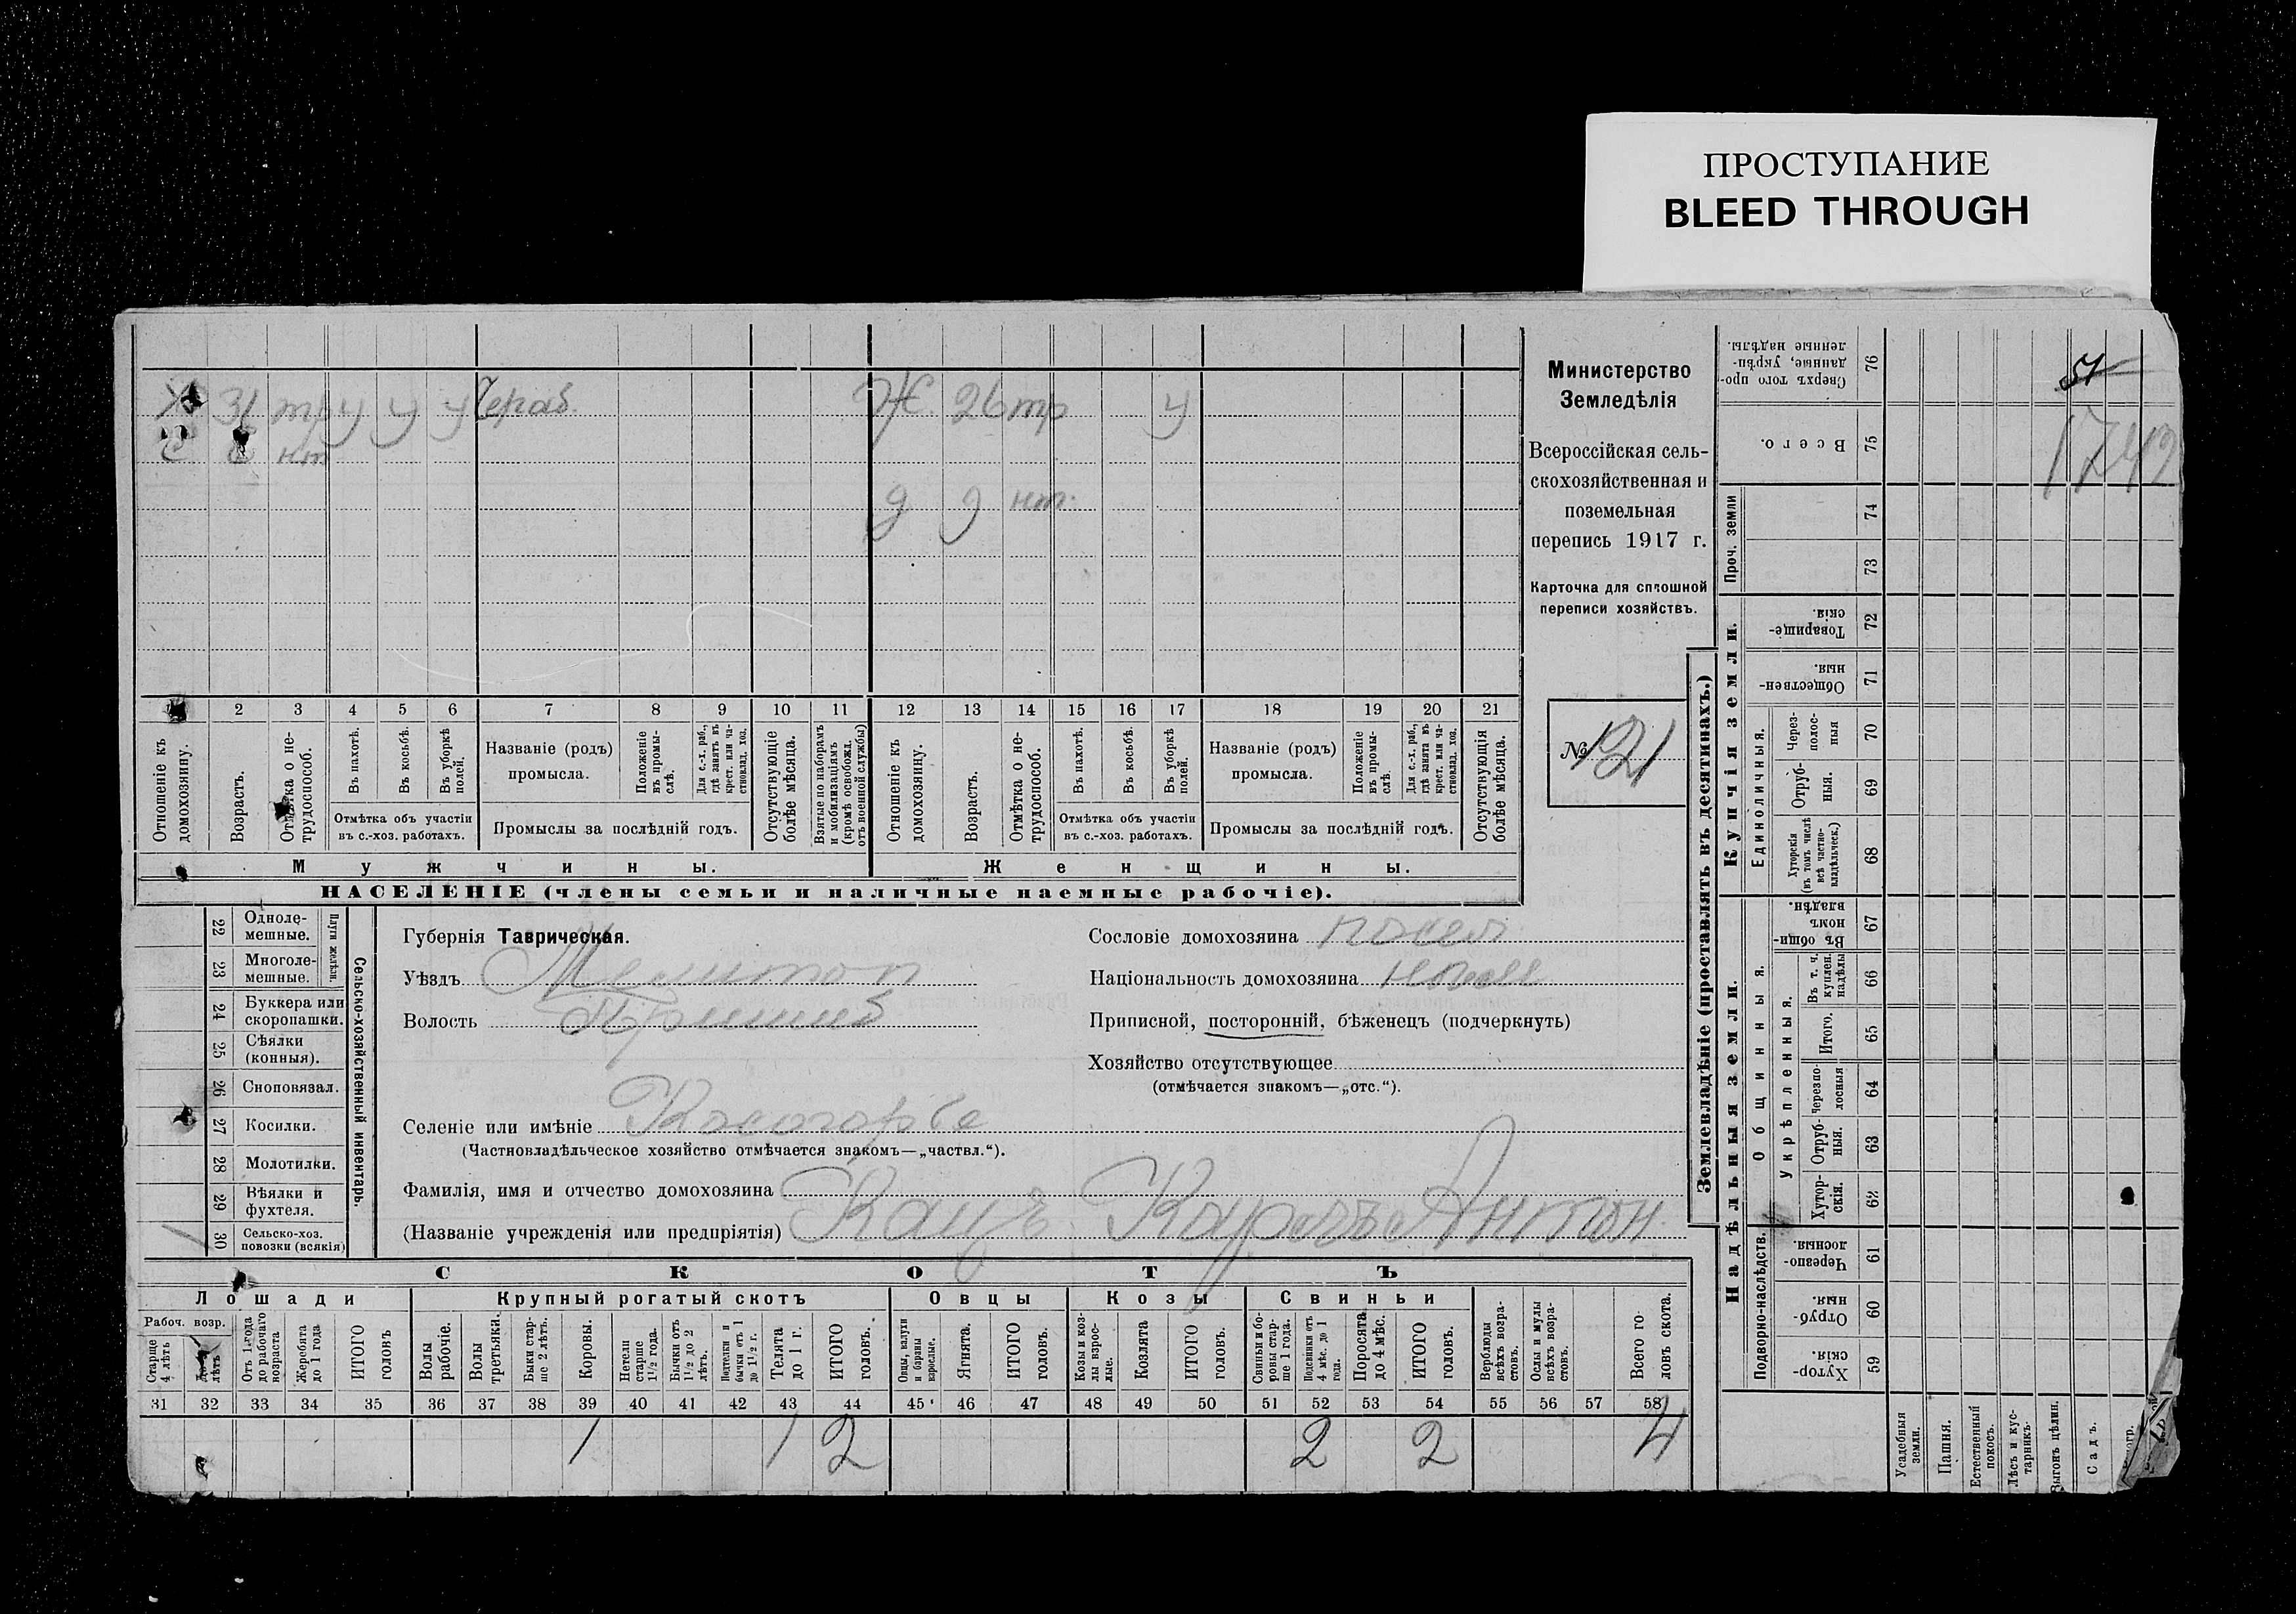 ПРОСТУПАНИЕ
BLEED THROUGH
Х 31 тр у у у Чераб. Ж 26 тр у
С нт
д 9 нт.
1 2 3 4 5 6 7 8 9 10 11 12 13 14 15 16 17 18 19 20 21
Отношеніе къ домохозяину.
Возрастъ.
Отмѣтка о не-трудоспособ.
Въ пахотѣ.
Въ косьбѣ.
Въ уборкѣ полей.
Отмѣтка объ участіи въ с.-хоз. работахъ.
Названіе (родъ) промысла.
Положеніе въ промы-слѣ.
Для с.-х. раб., гдѣ занятъ въ крест. или ча-стновлад. хоз.
Промыслы за послѣдній годъ.
Отсутствующіе болѣе мѣсяца.
Взятые по наборамъ и мобилизаціямъ (кромѣ освобожд. отъ военной службы)
Отношеніе къ домохозяину.
Возрастъ.
Отмѣтка о не-трудоспособ.
Въ пахотѣ.
Въ косьбѣ.
Въ уборкѣ полей.
Отмѣтка объ участіи въ с.-хоз. работахъ.
Названіе (родъ) промысла.
Положеніе въ промы-слѣ.
Для с.-х. раб., гдѣ занята въ крест. или ча-стновлад. хоз.
Промыслы за послѣдній годъ.
Отсутствующія болѣе мѣсяца.
Мужчины. Женщины.
НАСЕЛЕНІЕ (члены семьи и наличные наемные рабочіе).
Министерство
Земледѣлія
Всероссійская сель-
скохозяйственная и
поземельная
перепись 1917 г.
Карточка для сплошной
переписи хозяйствъ.
№ 121
22 Одноле-мешные.
23 Многоле-мешные.
Плуги желѣзн.
24 Буккера или скоропашки.
25 Сѣялки (конныя).
26 Сноповязал.
27 Косилки.
28 Молотилки.
29 Вѣялки и фухтеля.
1 30 Сельско-хоз. повозки (всякія)
Сельско-хозяйственный инвентарь.
Губернія Таврическая.
Уѣздъ Мелитоп
Волость Пришиб
Селеніе или имѣніе Косогорье
(Частновладѣльческое хозяйство отмѣчается знакомъ—„частвл.“).
Фамилія, имя и отчество домохозяина
(Названіе учрежденія или предпріятія) Кацъ Карлъ Антон
Сословіе домохозяина посел
Національность домохозяина
Приписной, посторонній, бѣженецъ (подчеркнуть)
Хозяйство отсутствующее
(отмѣчается знакомъ—„отс.“).
СКОТЪ
Лошади Крупный рогатый скотъ Овцы Козы Свиньи
Рабоч. возр.
Старше 4 лѣтъ
До 4 лѣтъ
Отъ 1 года до рабочаго возраста
Жеребята до 1 года
ИТОГО головъ
Волы рабочіе.
Волы третьяки.
Быки стар-ше 2 лѣтъ.
Коровы.
Нетели старше 1½ года.
Бычки отъ 1½ до 2 лѣтъ.
Нетелки и бычки отъ 1 до 1½ г.
Телята до 1 г.
ИТОГО головъ.
Овцы, валухи и бараны взрослые.
Ягнята.
ИТОГО головъ.
Козы и коз-лы взрос-лые.
Козлята
ИТОГО головъ.
Свиньи и бо-ровы стар-ше 1 года.
Подсвинки отъ 4 мѣс. до 1 года.
Поросята до 4 мѣс.
ИТОГО головъ.
Верблюды всѣхъ возра-стовъ.
Ослы и мулы всѣхъ возра-стовъ.
Всего го-ловъ скота.
31 32 33 34 35 36 37 38 39 40 41 42 43 44 45 46 47 48 49 50 51 52 53 54 55 56 57 58
1 1 2 2 2 4
Землевладѣніе (проставлять въ десятинахъ.)
Надѣльныя земли.
Купчія земли.
Проч. земли
Подворно-наслѣдств.
Общинныя.
Укрѣпленныя.
Единоличныя.
76 Сверхъ того про-данные, укрѣп-ленные надѣлы.
75 Всего.
74
73
72 Товарище-скія.
71 Обществен-ныя.
70 Через-полос-ныя
69 Отруб-ныя.
68 Хуторскія (въ томъ числѣ всѣ частно-владѣльческ.)
67 Въ общи-номъ владѣн.
66 Въ т. ч. куплен. надѣлы
65 Итого.
64 Черезпо-лосныя
63 Отруб-ныя.
62 Хутор-скія.
61 Черезпо-лосныя.
60 Отруб-ныя.
59 Хутор-скія.
Усадебныя земли.
Пашня.
Естественный покосъ.
Лѣсъ и кус-тарникъ.
Выгонъ цѣлин.
Садъ.
51
1742